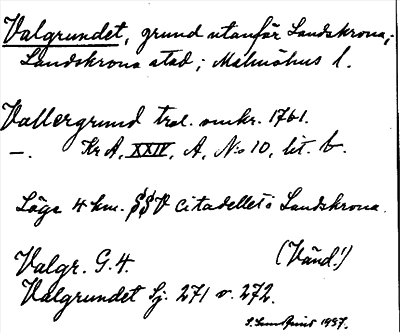 Valgrundet, grund utanför Landskrona;
Landskrona stad; Malmöhus l.
Vallergrund trol. omkr. 1761.
—. KrA, XXIV, A, N:o 10, lit. b.
Läge 4 km. SSV Citadellet i Landskrona.
(Vänd!)
Valgr. G. 4.
Valgrundet Sj. 271 o. 272.
S. 1937.